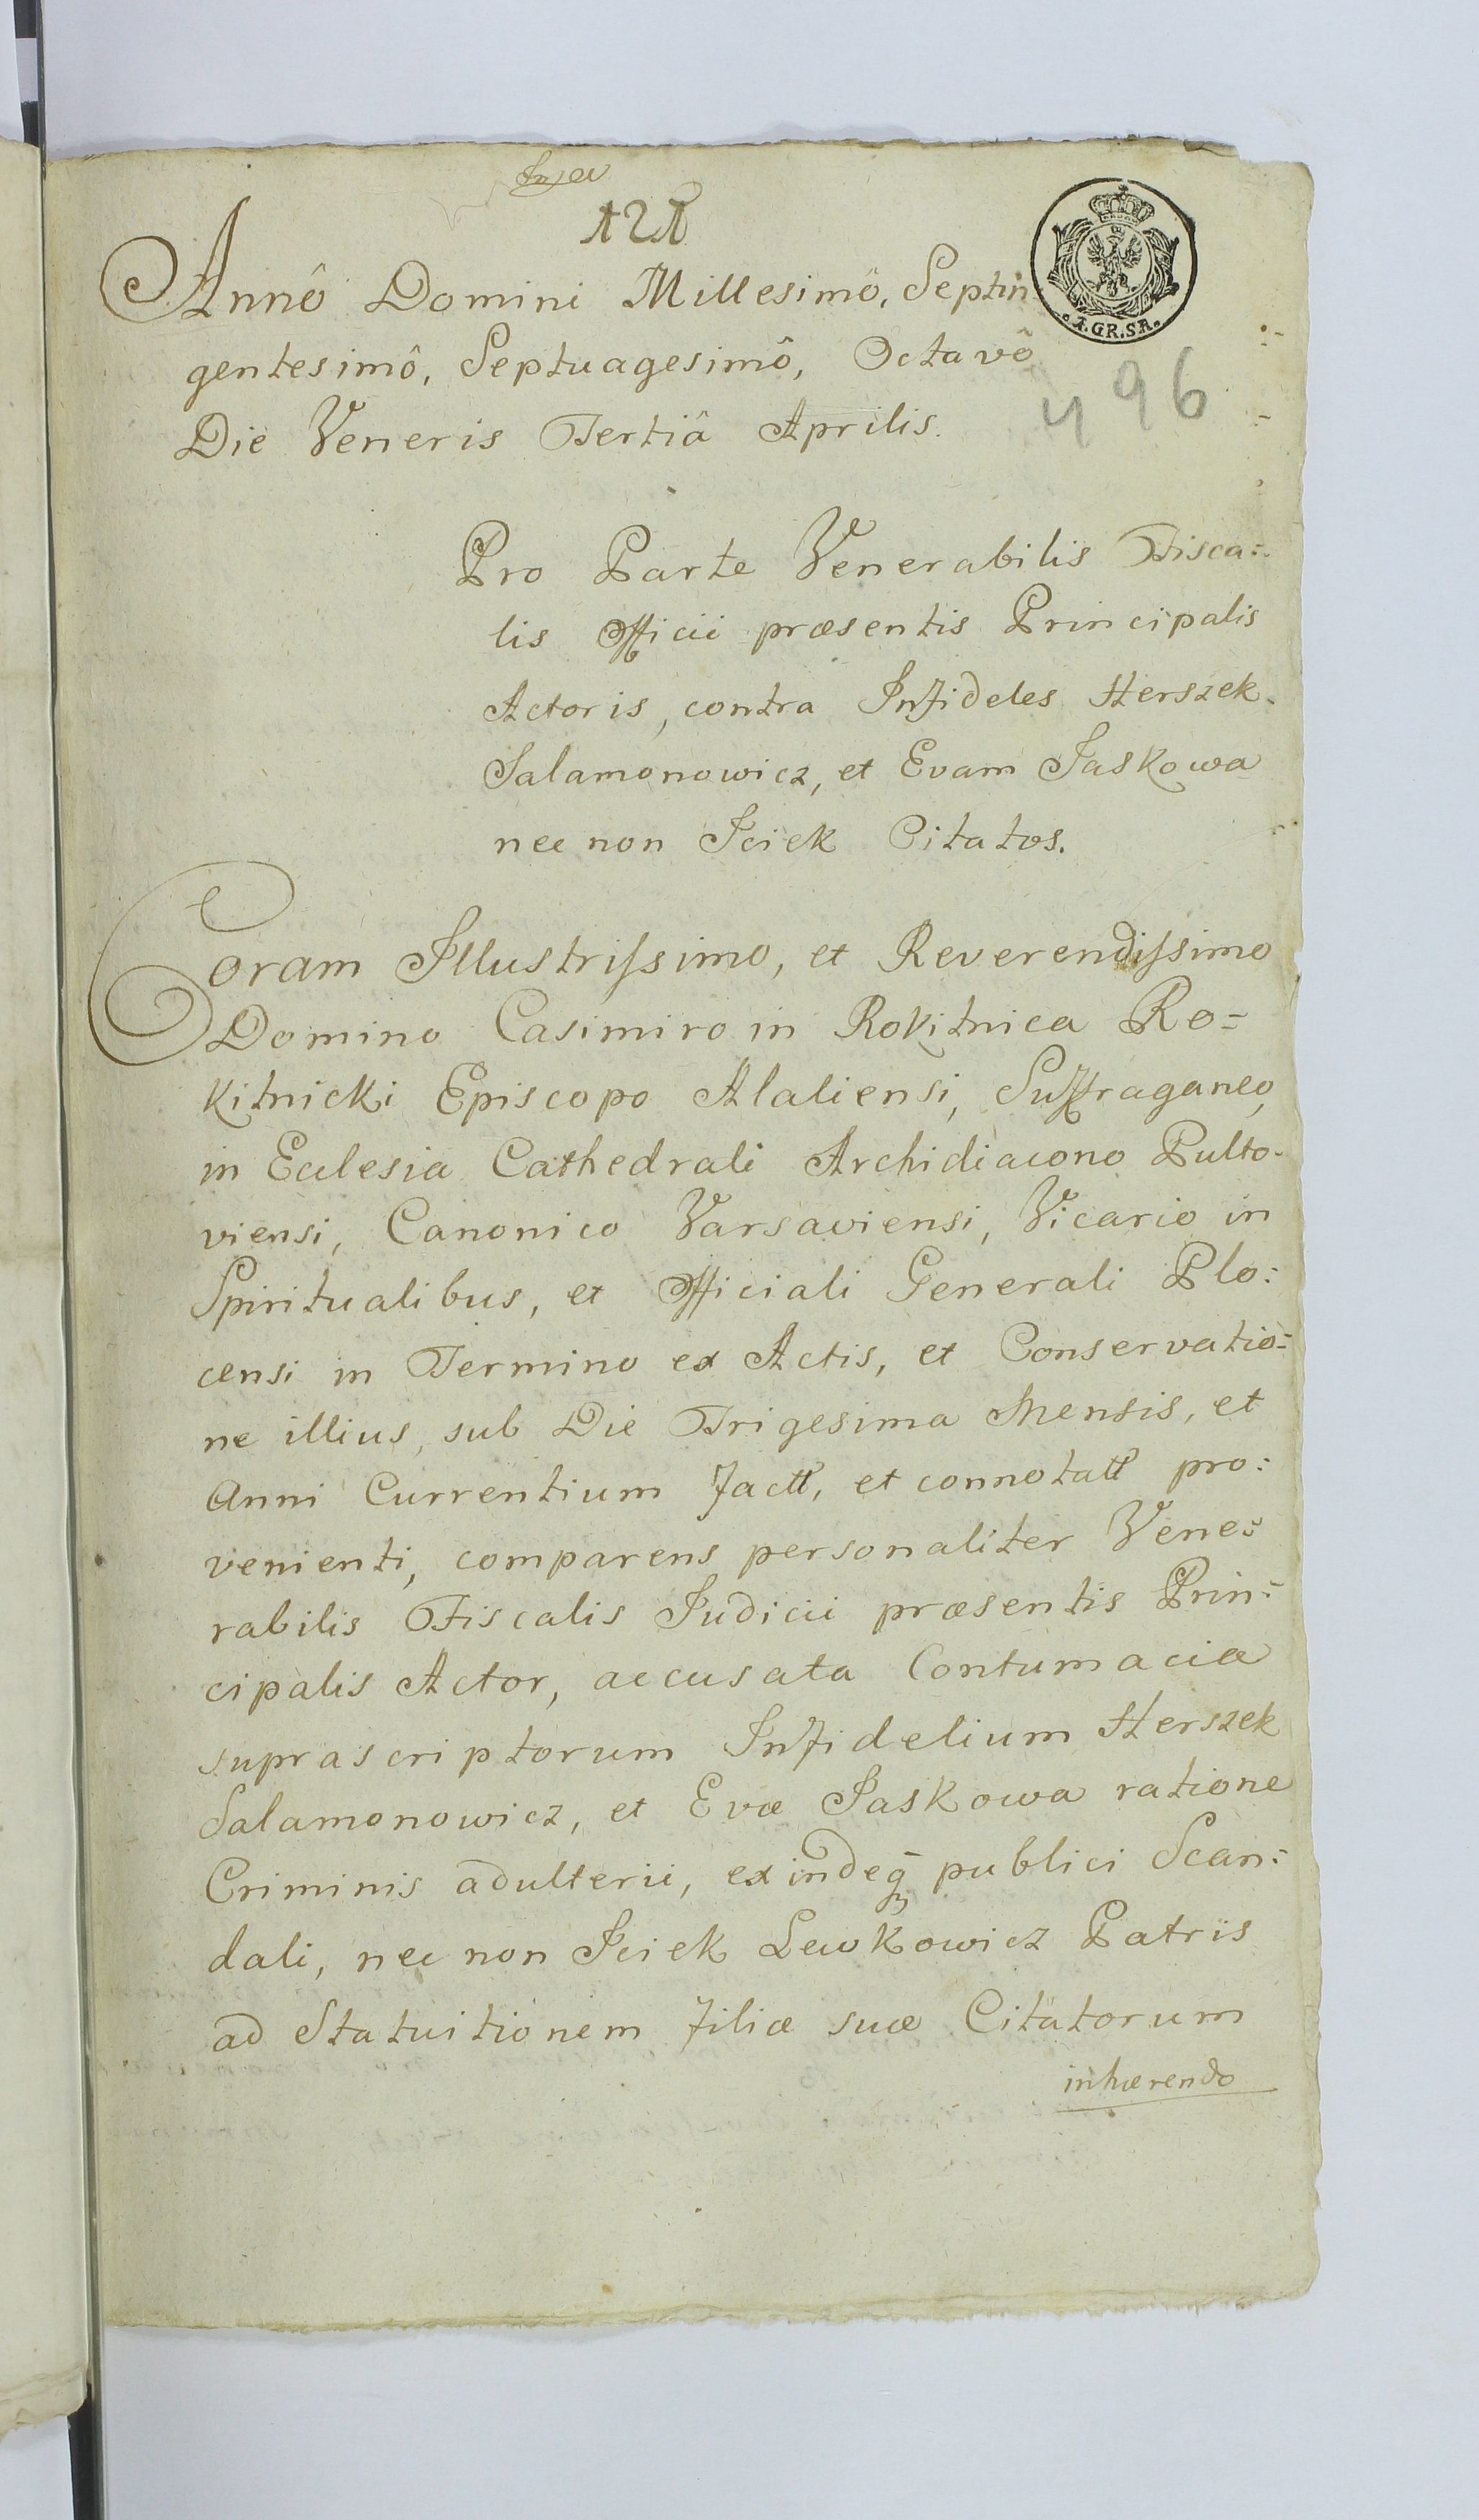 Annô Domini Millesimô, Septin
gentesimô, Septuagesimô, Octavô
Die Veneris Tertiâ Aprilis.
.1.GR.SR.
496
Pro Parte Venerabilis Fisca=
lis Officii præsentis Principalis
Actoris, contra Infideles Herszek
Salamonowicz, et Evam Jaskowa
nec non Iciek Citatos.
Coram Illustrissimo, et Reverendissimo
Domino Casimiro in Rokitnica Ro=
kitnicki Episcopo Alaliensi, Suffraganeo,
in Eclesia Cathedrali Archidiacono Pulto-
viensi, Canonico Varsaviensi, Vicario in
Spiritualibus, et Officiali Generali Plo:
censi in Termino ex Actis, et Conservatio=
ne illius, sub Die Trigesima Mensis, et
Anni Currentium factt, et connotatt pro:
venienti, comparens personaliter Vene=
rabilis Fiscalis Iudicii præsentis Prin=
cipalis Actor, accusata Contumacia
suprascriptorum Infidelium Herszek
Salamonowicz, et Evæ Jaskowa ratione
Criminis adulterii, exindeq̃ publici Scan=
dali, nec non Iciek Lewkowicz Patris
ad Statuitionem filiæ suæ Citatorum
inhærendo